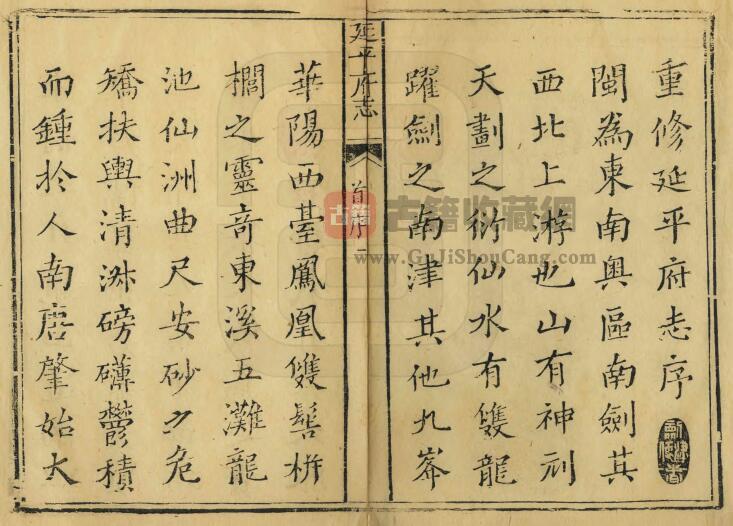 重修延平府志序
閩為東南奥區南劍其
西北上游也山有神刓
天劃之衍仙水有雙龍
躍劍之南津其他九峯
延平府志
首序 二
華陽西臺鳳凰雙髻栟
櫚之靈竒東溪五灘龍
池仙洲曲尺安砂危
矯扶輿清淑磅礴鬱積
而鍾於人南唐肇始大
古籍
古籍收藏網
www.GuJiShouCang.com